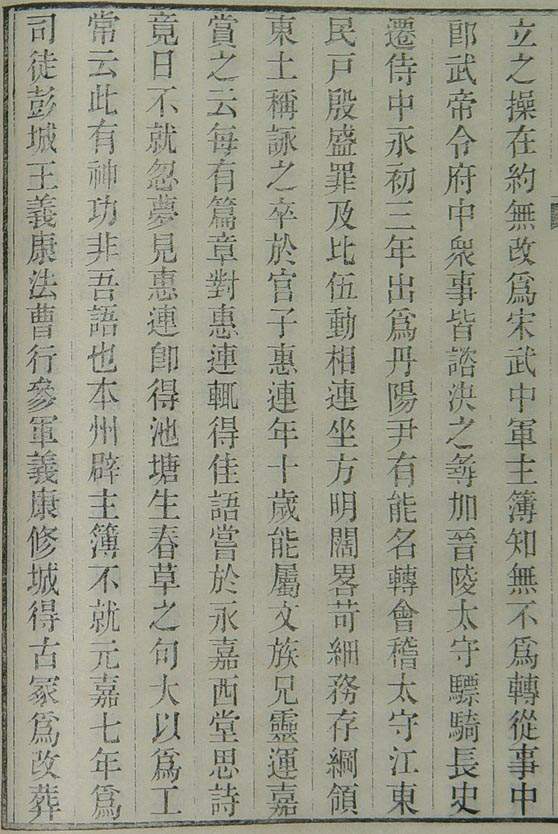 立之操在約無改爲宋武中軍主簿知無不爲轉從事中
郎武帝令府中衆事皆諮決之尋加晉陵太守驃騎長史
遷侍中永初三年出爲丹陽尹有能名轉會稽太守江東
民戸殷盛罪及比伍動相連坐方明闊畧苛細務存綱領
東土稱詠之卒於官子惠連年十歲能屬文族兄靈運嘉
賞之云每有篇章對惠連輒得佳語嘗於永嘉西堂思詩
竟日不就忽夢見惠連卽得池塘生春草之句大以爲工
常云此有神功非吾語也本州辟主簿不就元嘉七年爲
司徒彭城王義康法曹行參軍義康修城得古冢爲改葬